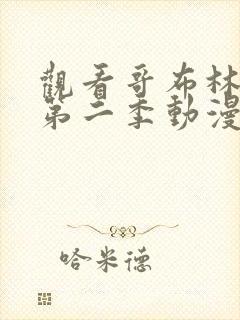 觀看哥布林
第二季動漫
哈米德